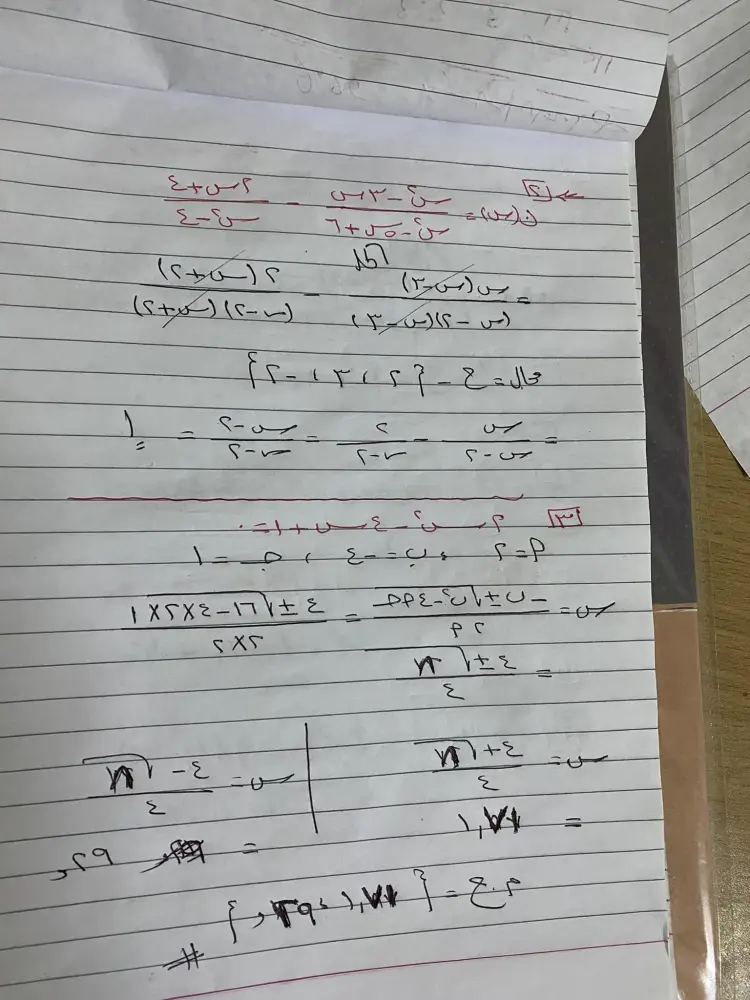 [٢] ن(س) = (س٢ - ٣س)/(س٢ - ٥س + ٦) - (٢س + ٤)/(س٢ - ٤)
الحل
= س(س-٣)/(س-٢)(س-٣) - ٢(س+٢)/(س-٢)(س+٢)
مجال = ح - {٢، ٣، -٢}
= س/(س-٢) - ٢/(س-٢) = (س-٢)/(س-٢) = ١
[٣] ٢س٢ - ٤س + ١ = ٠
٢ = م ، ب = -٤ ، جـ = ١
س = (-ب ± √(ب٢ - ٤م جـ))/٢م = (٤ ± √(١٦ - ٤×٢×١))/(٢×٢)
= (٤ ± √٨)/٤
س = (٤ + √٨)/٤ | س = (٤ - √٨)/٤
= ١,٧١ = ,٢٩
م.ح = {١,٧١ ، ,٢٩} #